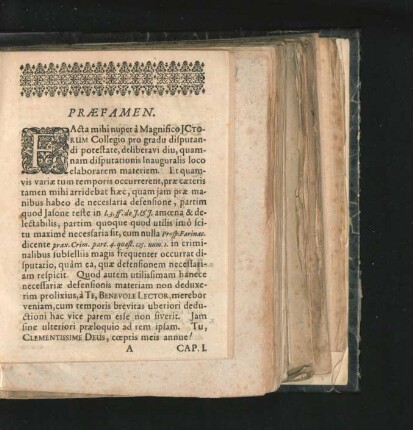 PRÆFAMEN.
FActa mihi nuper à Magnifico JCTO-
RUM Collegio pro gradu disputan-
di potestate, deliberavi diu, quam-
nam disputationis Inauguralis loco
elaborarem materiem. Et quam-
vis variæ tum temporis occurrerent, præ cæteris
tamen mihi arridebat hæc, quam jam præ ma-
nibus habeo de necessaria defensione, partim
quod Jasone teste in l. 3. ff. de J. & J. amœna & de-
lectabilis, partim quoque quod utilis imò sci-
tu maximè necessaria sit, cum nulla Prosp. Farinac.
dicente prax. Crim. part. 4. quæst. 125. num. 1. in crimi-
nalibus subselliis magis frequenter occurrat di-
sputatio, quàm ea, quæ defensionem necessari-
am respicit. Quod autem utilissimam hancce
necessariæ defensionis materiam non deduxe-
rim prolixius, à TE, BENEVOLE LECTOR, merebor
veniam, cum temporis brevitas uberiori dedu-
ctioni hac vice parem esse non siverit. Jam
sine ulteriori præloquio ad rem ipsam. Tu,
CLEMENTISSIME DEUS, cœptis meis annue!
A CAP. I.